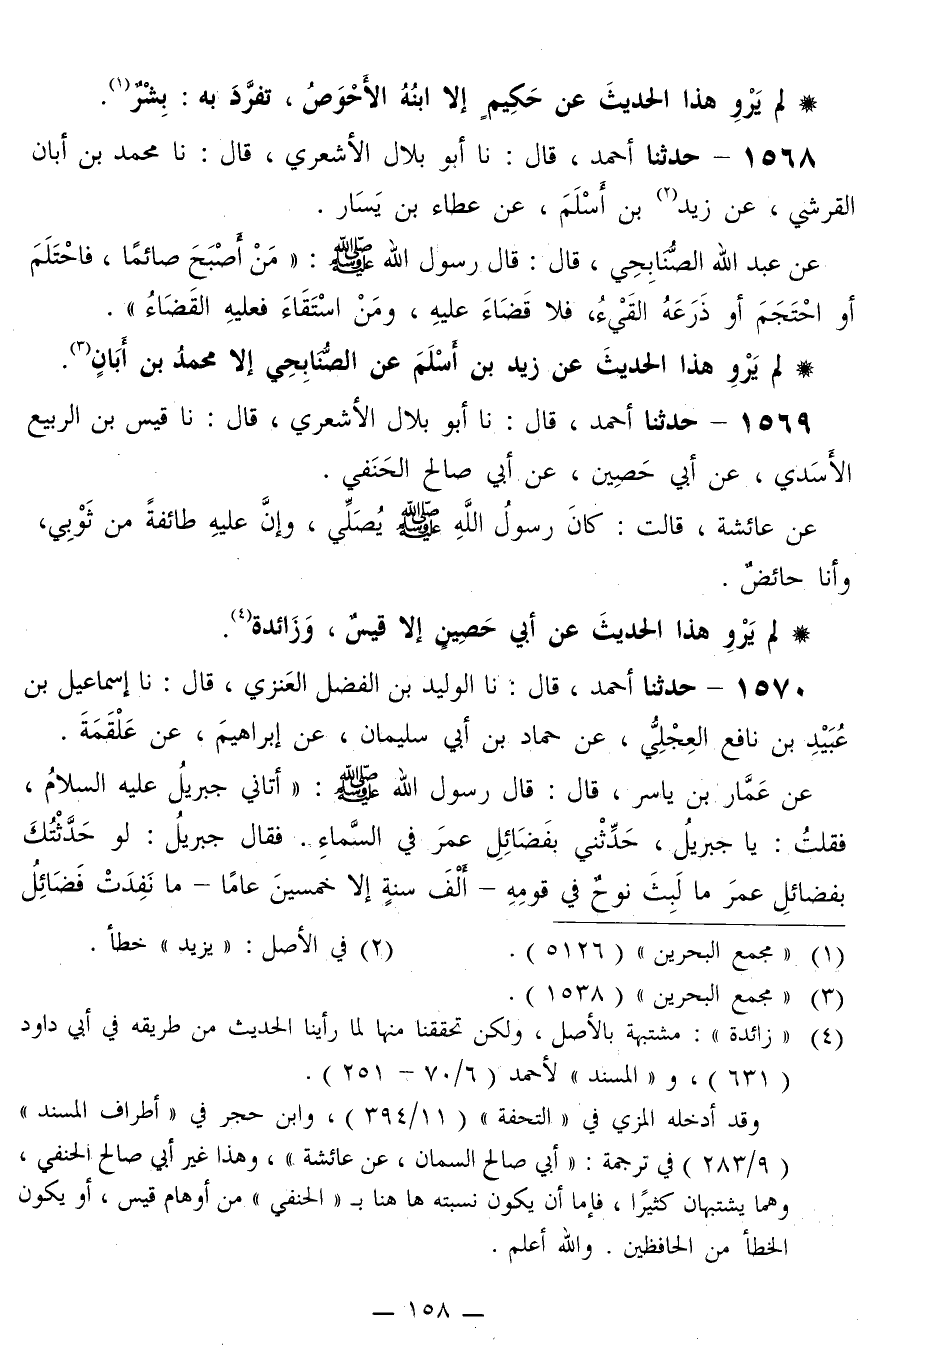 * لم يَرْوِ هذا الحديثَ عن حَكِيمٍ إلا ابنُهُ الأَحْوَصُ ، تفرَّدَ به : بِشْرٌ(١).
١٥٦٨ – حدثنا أحمد ، قال : نا أبو بلال الأشعري ، قال : نا محمد بن أبان
القرشي ، عن زيد(٢) بن أَسْلَمَ ، عن عطاء بن يَسَار .
عن عبد الله الصُّنَابِحِي ، قال : قال رسول الله ﷺ : « مَنْ أَصْبَحَ صائمًا ، فاحْتَلَمَ
أو احْتَجَمَ أو ذَرَعَهُ القَيْءُ، فلا قَضَاءَ عليهِ ، ومَنْ اسْتَقَاءَ فعليهِ القَضَاءُ » .
* لم يَرْوِ هذا الحديثَ عن زيد بن أَسْلَمَ عن الصُّنَابِحِي إلا محمدُ بن أَبَانٍ(٣).
١٥٦٩ – حدثنا أحمد ، قال : نا أبو بلال الأشعري ، قال : نا قيس بن الربيع
الأَسَدي ، عن أبي حَصِين ، عن أبي صالح الحَنَفي .
عن عائشة ، قالت : كانَ رسولُ اللَّهِ ﷺ يُصَلِّي ، وإنَّ عليهِ طائفةً من ثَوْبِي،
وأنا حائضٌ .
* لم يَرْوِ هذا الحديثَ عن أبي حَصِينٍ إلا قيسٌ ، وَزَائدة(٤).
١٥٧٠ – حدثنا أحمد ، قال : نا الوليد بن الفضل العَنزي ، قال : نا إسماعيل بن
عُبَيْدِ بن نافع العِجْلِيُّ ، عن حماد بن أبي سليمان ، عن إبراهيمَ ، عن عَلْقَمَةَ .
عن عَمَّار بن ياسر ، قال : قال رسول الله ﷺ : « أتاني جبريلُ عليه السلامُ ،
فقلتُ : يا جبريلُ ، حَدِّثْني بفَضَائِلِ عمرَ في السَّماءِ . فقال جبريلُ : لو حَدَّثْتُكَ
بفضائلِ عمرَ ما لَبِثَ نوحٌ في قومِهِ – أَلْفَ سنةٍ إلا خمسينَ عامًا – ما نَفِدَتْ فَضَائِلُ
(١) « مجمع البحرين » ( ٥١٢٦ ) . (٢) في الأصل : « يزيد » خطأ .
(٣) « مجمع البحرين » ( ١٥٣٨ ) .
(٤) « زائدة » : مشتبهة بالأصل ، ولكن تحققنا منها لما رأينا الحديث من طريقه في أبي داود
( ٦٣١ ) ، و « المسند » لأحمد ( ٧٠/٦ – ٢٥١ ) .
وقد أدخله المزي في « التحفة » ( ٣٩٤/١١ ) ، وابن حجر في « أطراف المسند »
( ٢٨٣/٩ ) في ترجمة : « أبي صالح السمان ، عن عائشة » ، وهذا غير أبي صالح الحنفي ،
وهما يشتبهان كثيرًا ، فإما أن يكون نسبته ها هنا بـ « الحنفي » من أوهام قيس ، أو يكون
الخطأ من الحافظين . والله أعلم .
— ١٥٨ —